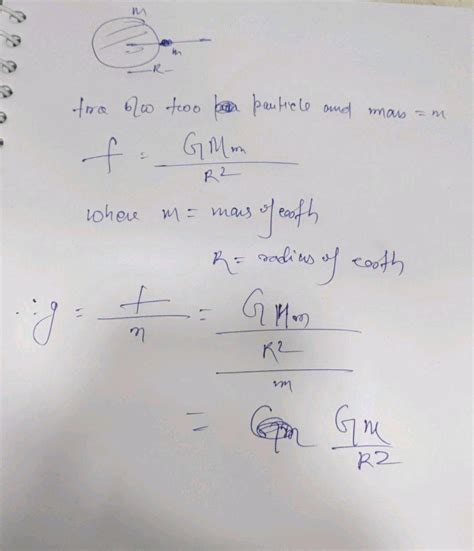 M
m
R
b/w two particle and mass = m
f = GMm / R2
where m = mass of earth
R = radius of earth
∴ g = f / m = GMm / R2 / m
= GM / R2